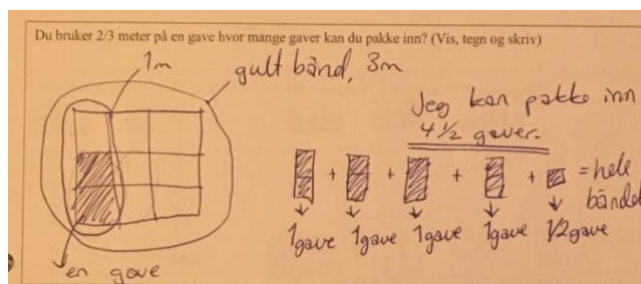 Du bruker 2/3 meter på en gave hvor mange gaver kan du pakke inn? (Vis, tegn og skriv)
1m
gult bånd, 3m
Jeg kan pakke inn
4 1/2 gaver.
+ + + + = hele
båndet
1gave 1gave 1gave 1gave 1/2 gave
en gave